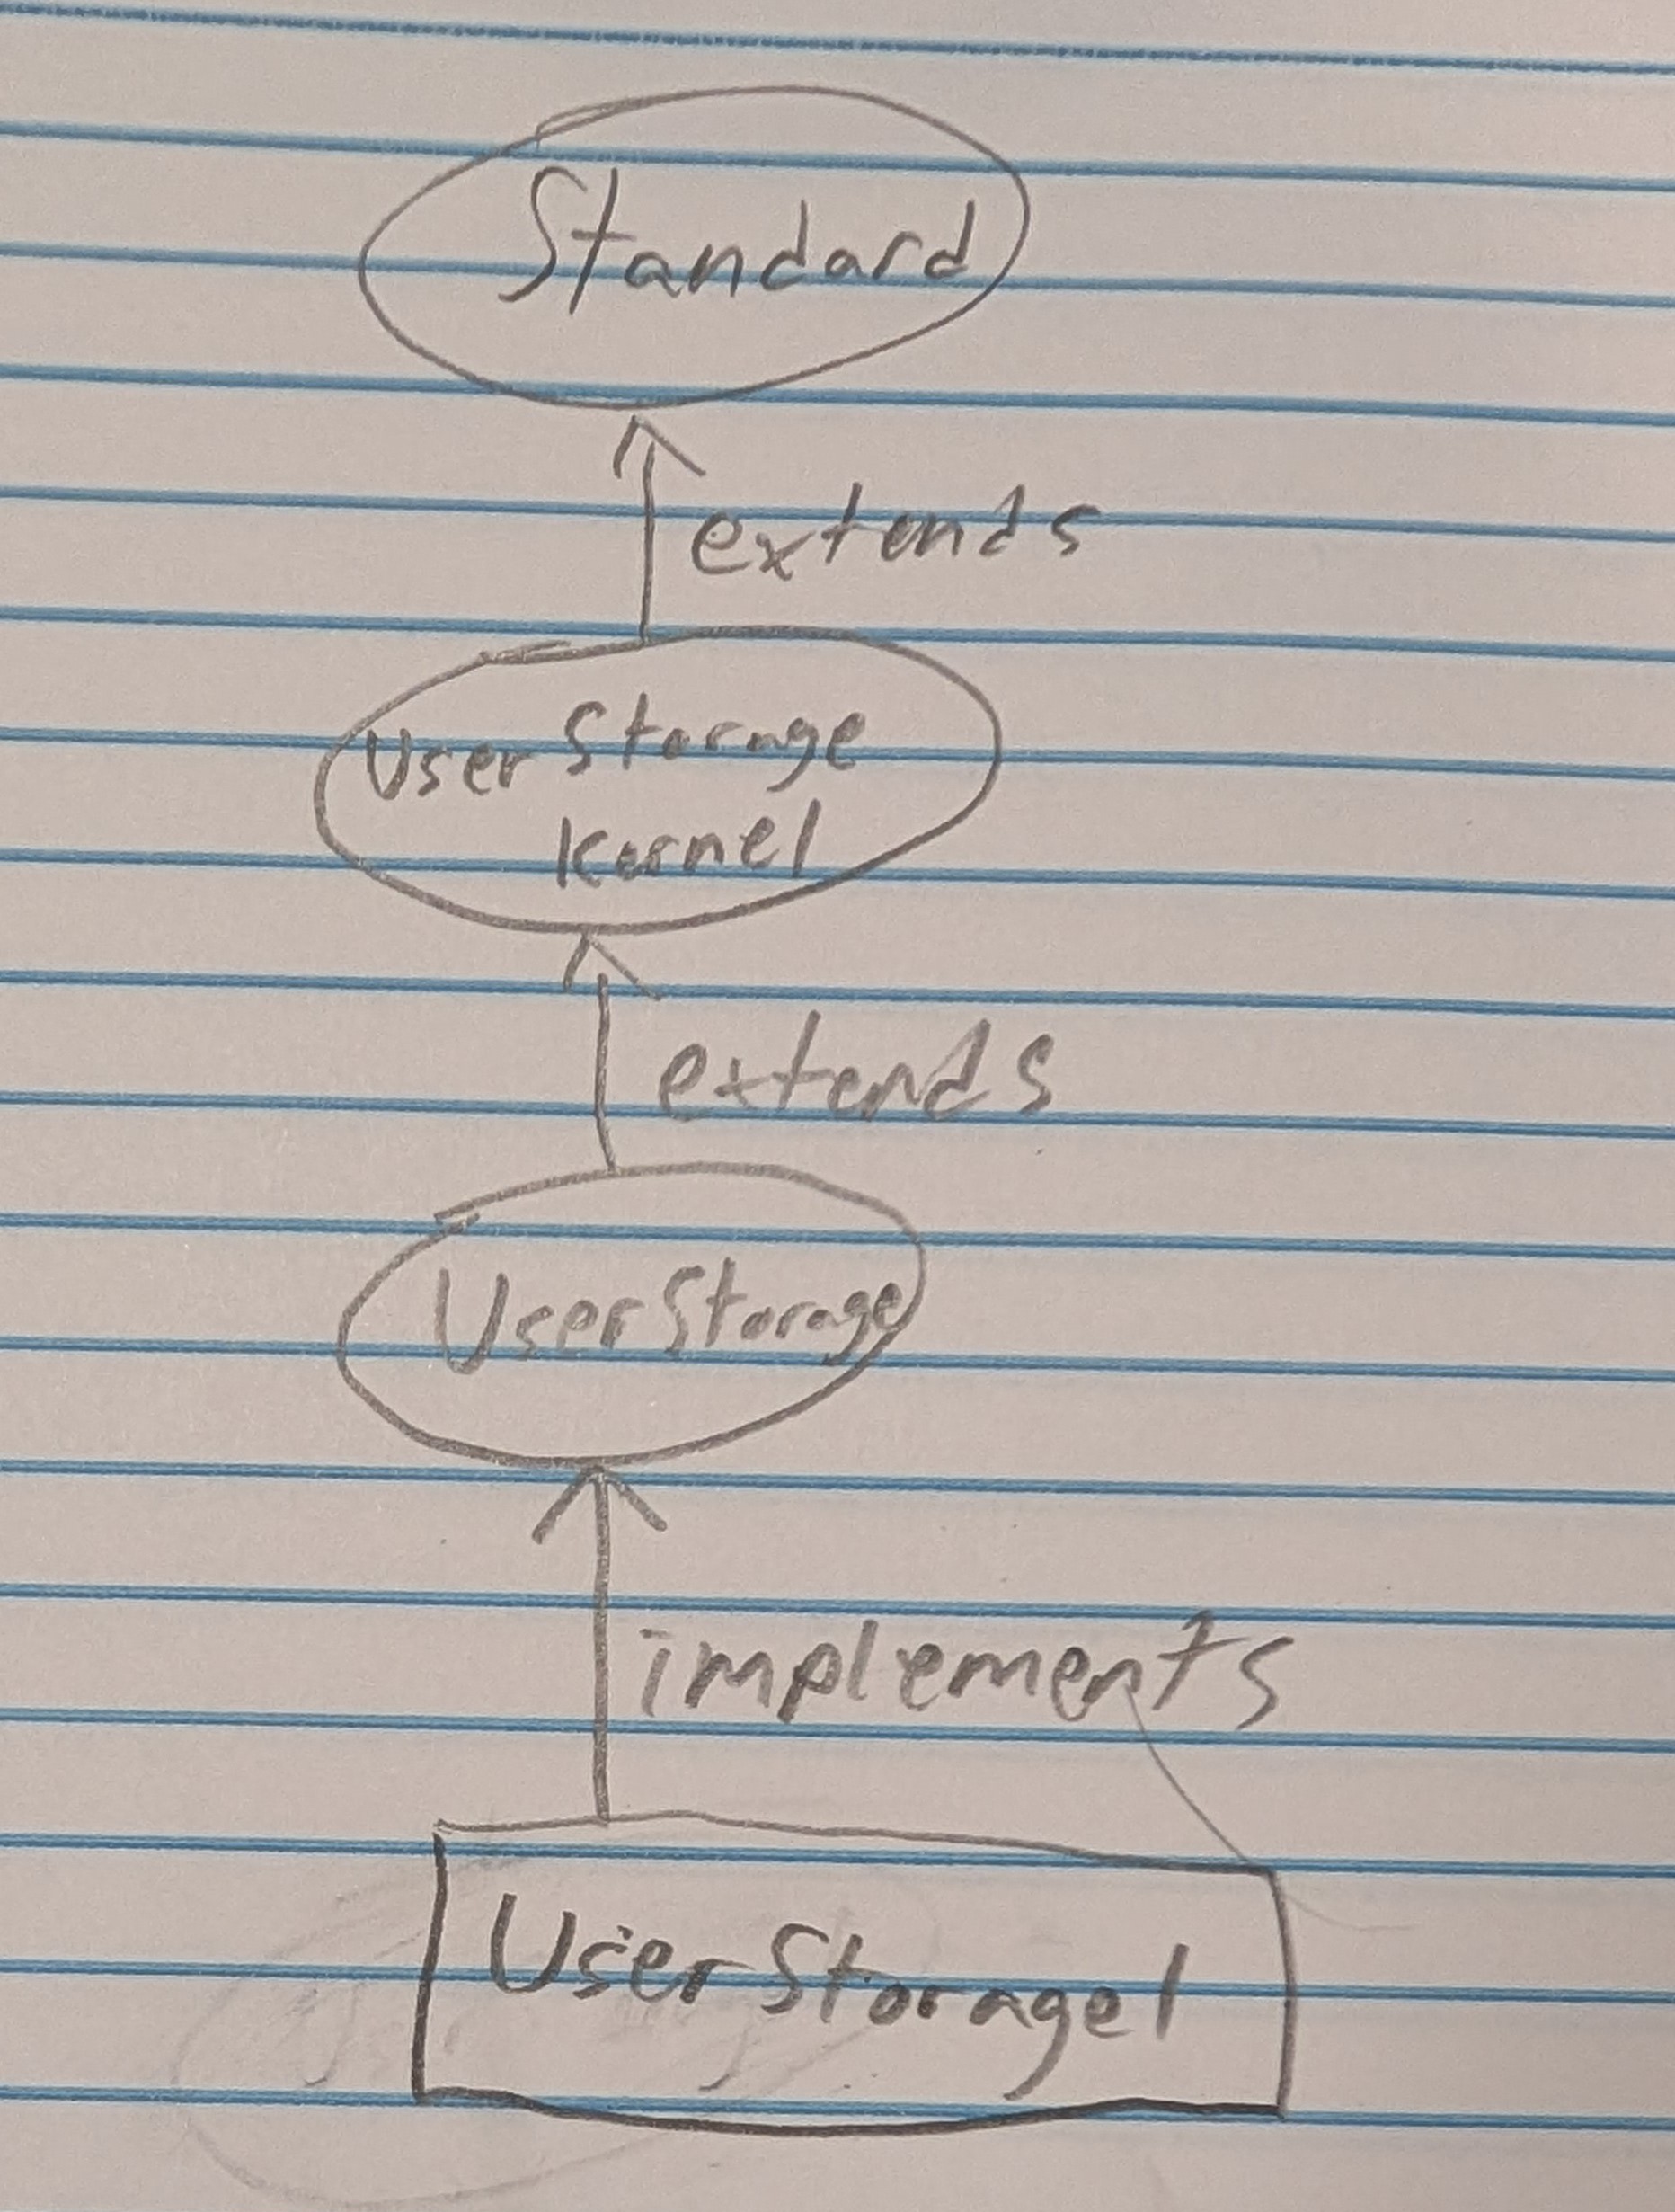 Standard
extends
User Storage
Kernel
extends
UserStorage
implements
UserStorage1